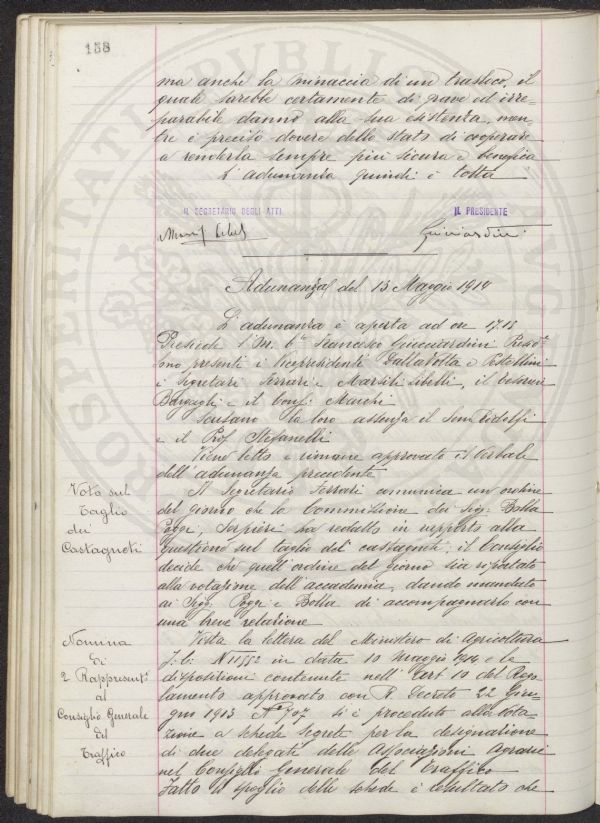 158
ma anche la minaccia di un trasloco, il
quale sarebbe certamente di grave ed irre-
parabile danno alla sua esistenza, men-
tre è preciso dovere dello Stato di cooperare
a renderla sempre più sicura e benefica
L'adunanza quindi è tolta
IL SEGRETARIO DEGLI ATTI
IL PRESIDENTE
Guicciardini
Adunanza del 13 Maggio 1914
L'adunanza è aperta ad ore 17.15
Presiede l'On. Francesco Guicciardini
Sono presenti i Vicepresidente Dalla Volta e Pestellini
i Segretari Ferrari e Marsili Libelli, il
Bargagli e il Cons: Marchi
Scusano la loro assenza il Sen Ridolfi
e il Prof Stefanelli
Viene letto e rimane approvato il Verbale
dell'adunanza precedente
Voto sul
Taglio
dei
Castagneti
Il Segretario Ferrari comunica un ordine
del giorno che la Commissione dei Sig: Bolla
Pogge, Serpieri ha redatto in rapporto alla
questione sul taglio dei castagneti; il Consiglio
decide che quell'ordine del giorno sia riportato
alla votazione dell'accademia, dando mandato
ai Sigg: Pogge e Bolla di accompagnarlo con
una breve relazione
Nomina
di
2 Rappresent.i
al
Consiglio Generale
del
Traffico
Vista la lettera del Ministero di Agricoltura
I. C. N 11552 in data 10 Maggio 1914 e le
disposizioni contenute nell'Art 10 del Rego-
lamento approvato con R. Decreto 22 Giu-
gno 1913 No 707 si è proceduto alla vota-
zione a schede segrete per la designazione
di due delegati delle Associazioni Agrarie
nel Consiglio Generale del Traffico
Fatto lo spoglio delle schede è resultato che